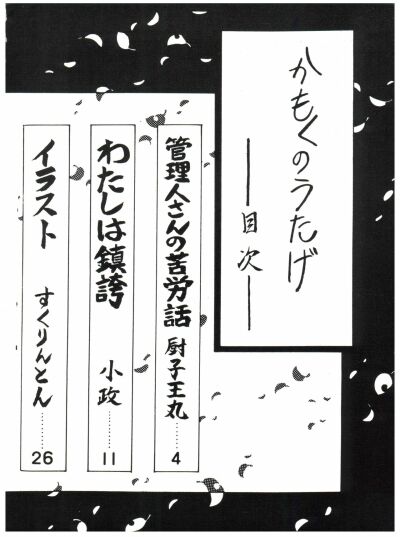 かもくのうたげ
—目次—
管理人さんの苦労話 厨子王丸……4
わたしは鎮誇 小政……11
イラスト すくりんとん……26